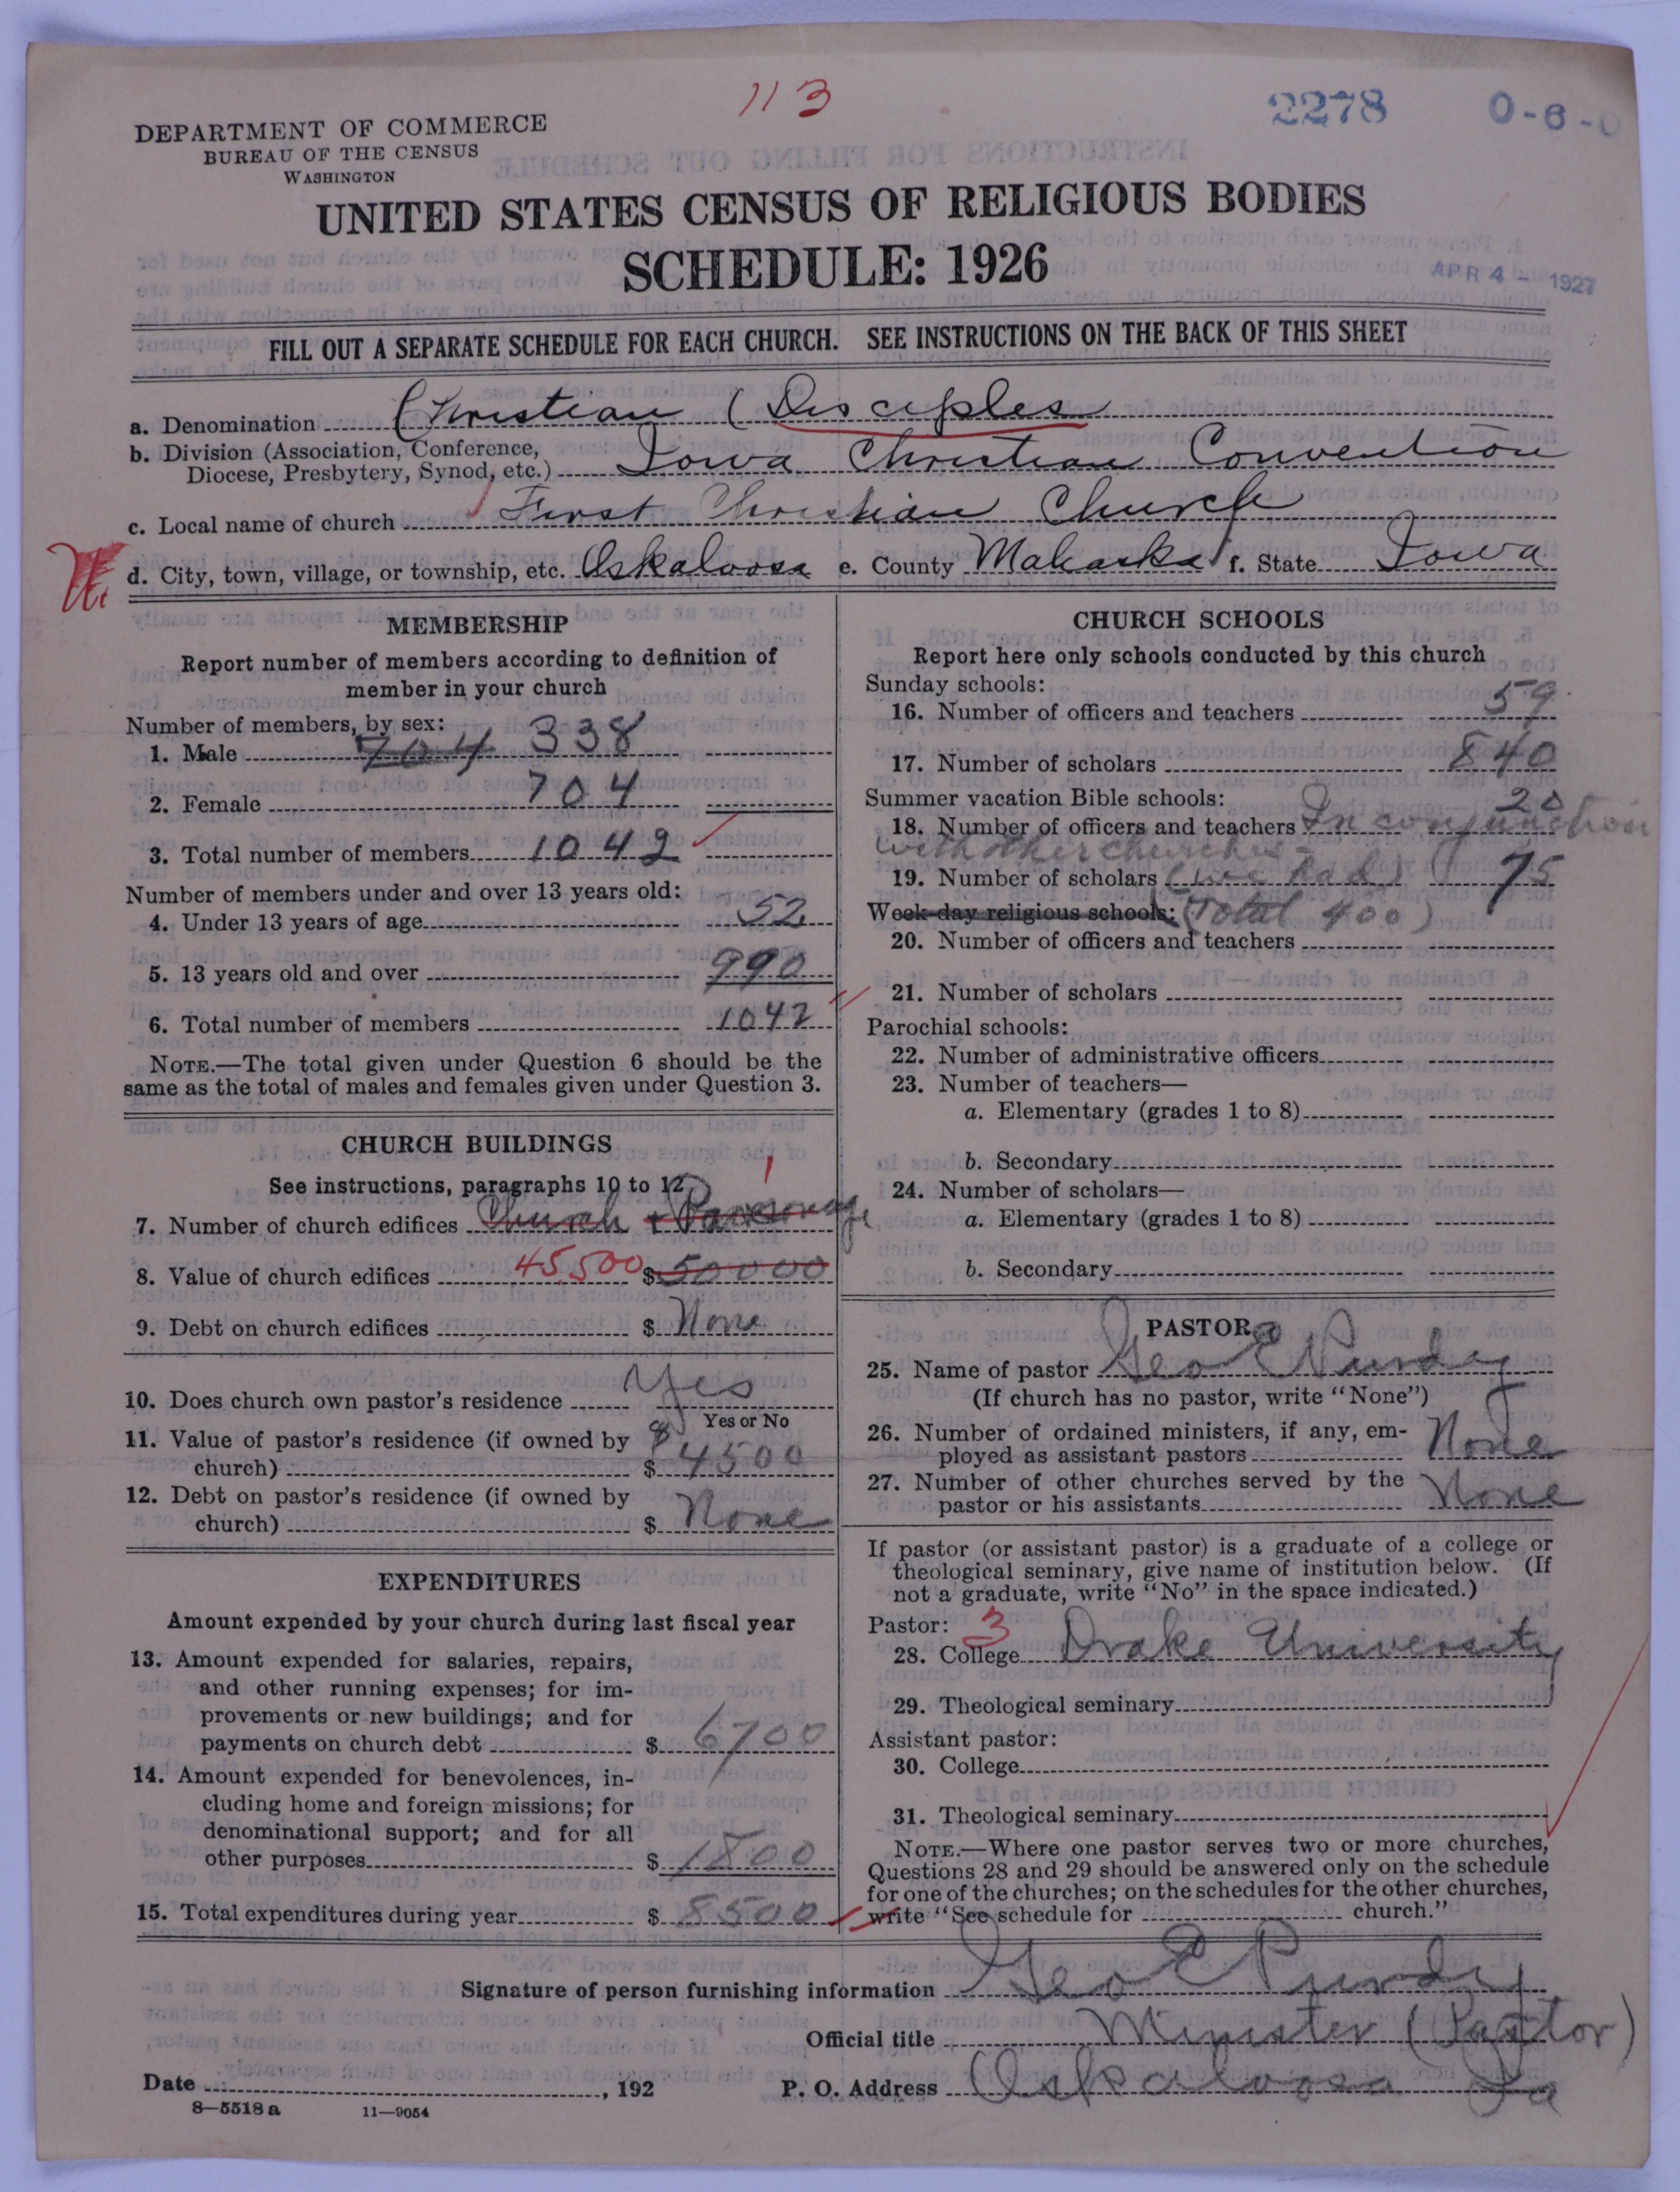 113
2278
0-6-0
DEPARTMENT OF COMMERCE
BUREAU OF THE CENSUS
WASHINGTON
UNITED STATES CENSUS OF RELIGIOUS BODIES
SCHEDULE: 1926
APR 4 - 1927
FILL OUT A SEPARATE SCHEDULE FOR EACH CHURCH. SEE INSTRUCTIONS ON THE BACK OF THIS SHEET
a. Denomination Christian (Disciples
b. Division (Association, Conference,
Diocese, Presbytery, Synod, etc.) Iowa Christian Convention
c. Local name of church First Christian Church
d. City, town, village, or township, etc. Oskaloosa e. County Mahaska f. State Iowa
MEMBERSHIP
Report number of members according to definition of
member in your church
Number of members, by sex:
1. Male 704 338
2. Female 704
3. Total number of members 1042
Number of members under and over 13 years old:
4. Under 13 years of age 52
5. 13 years old and over 990
6. Total number of members 1042
NOTE.—The total given under Question 6 should be the
same as the total of males and females given under Question 3.
CHURCH BUILDINGS
See instructions, paragraphs 10 to 12
1
7. Number of church edifices Church + Parsonage
8. Value of church edifices 45500 $ 50000
9. Debt on church edifices $ None
10. Does church own pastor's residence Yes
Yes or No
11. Value of pastor's residence (if owned by
church) $ 4500
12. Debt on pastor's residence (if owned by
church) $ None
EXPENDITURES
Amount expended by your church during last fiscal year
13. Amount expended for salaries, repairs,
and other running expenses; for im-
provements or new buildings; and for
payments on church debt $ 6700
14. Amount expended for benevolences, in-
cluding home and foreign missions; for
denominational support; and for all
other purposes $ 1800
15. Total expenditures during year $ 8500
CHURCH SCHOOLS
Report here only schools conducted by this church
Sunday schools:
16. Number of officers and teachers 59
17. Number of scholars 840
Summer vacation Bible schools: 20
18. Number of officers and teachers In conjunction
with other churches
19. Number of scholars (we had) 75
Week-day religious schools: (Total 400)
20. Number of officers and teachers
21. Number of scholars
Parochial schools:
22. Number of administrative officers
23. Number of teachers—
a. Elementary (grades 1 to 8)
b. Secondary
24. Number of scholars—
a. Elementary (grades 1 to 8)
b. Secondary
PASTOR
25. Name of pastor Geo E Purdy
(If church has no pastor, write "None")
26. Number of ordained ministers, if any, em-
ployed as assistant pastors None
27. Number of other churches served by the
pastor or his assistants None
If pastor (or assistant pastor) is a graduate of a college or
theological seminary, give name of institution below. (If
not a graduate, write "No" in the space indicated.)
Pastor: 3
28. College Drake University
29. Theological seminary
Assistant pastor:
30. College
31. Theological seminary
NOTE.—Where one pastor serves two or more churches,
Questions 28 and 29 should be answered only on the schedule
for one of the churches; on the schedules for the other churches,
write "See schedule for church."
Signature of person furnishing information Geo E Purdy
Official title Minister (Pastor)
Date , 192 P. O. Address Oskaloosa Ia
8—5518 a 11—9054